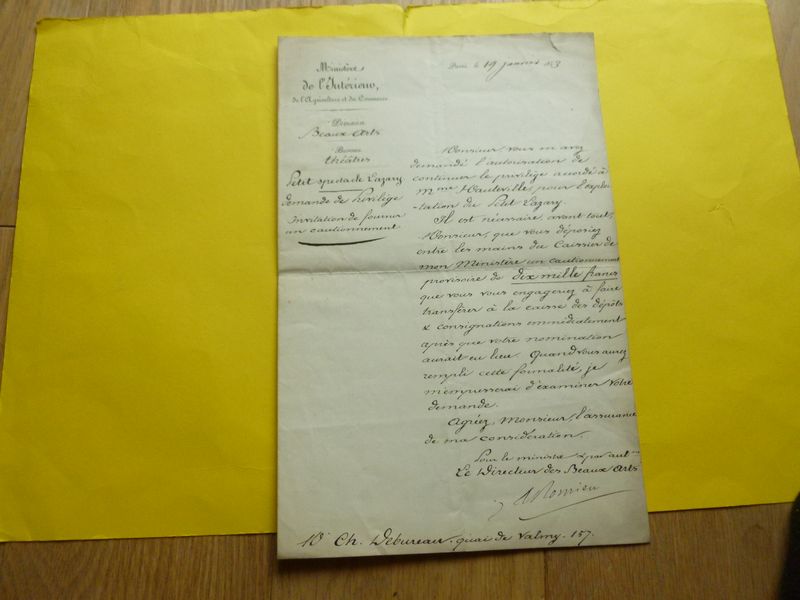 Ministère
de l'Intérieur,
de l'Agriculture et du Commerce
Division
Beaux Arts
Bureau
théâtres
Petit spectacle Lazary
demande de Privilège
Invitation de fournir
un cautionnement
Paris, le 19 janvier 1853
Monsieur, vous m'avez
demandé l'autorisation de
continuer le privilège accordé à
Mme Hauteville pour l'exploi-
-tation du Petit Lazary.
Il est nécessaire, avant tout,
Monsieur, que vous déposiez
entre les mains du Caissier de
mon Ministère un cautionnement
provisoire de dix mille francs
que vous vous engageriez à faire
transférer à la caisse des dépôts
& consignations immédiatement
après que votre nomination
aurait eu lieu. Quand vous aurez
rempli cette formalité, je
m'empresserai d'examiner votre
demande.
Agréez, Monsieur, l'assurance
de ma considération.
Pour le ministre & par autn
Le Directeur des Beaux Arts
A Romieu
Mr Ch. Debureau, quai de Valmy. 157.